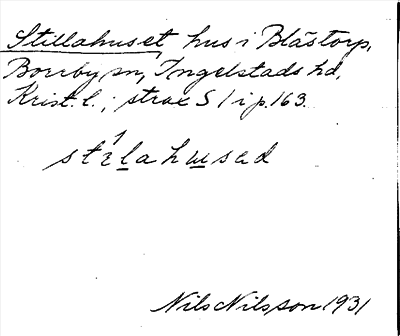 Stillahuset, hus i Blåstorp,
Borrby sn, Ingelstads hd,
Krist. l.; strax S/ i p. 163.
stílahusad
Nils Nilsson 1931